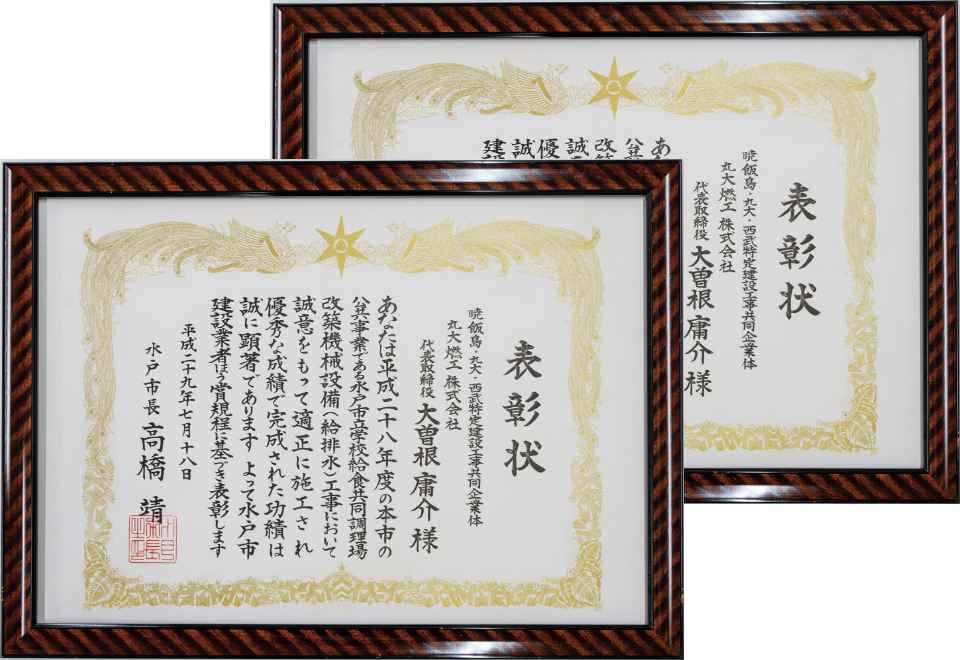 表彰状
暁飯島・九大・西武特定建設工事共同企業体
丸大燃工株式会社
代表取締役 大曽根庸介様
あなたは平成二十八年度の本市の
公共事業である水戸市立学校給食共同調理場
改築機械設備(給排水)工事において
誠意をもって適正に施工され
優秀な成績で完成された功績は
誠に顕著であります よって水戸市
建設業者ほう賞規程に基づき表彰します
平成二十九年七月十八日
水戸市長 高橋靖
表彰状
暁飯島・九大・西武特定建設工事共同企業体
丸大燃工株式会社
代表取締役 大曽根庸介様
あ
公
改
誠
優
誠
建